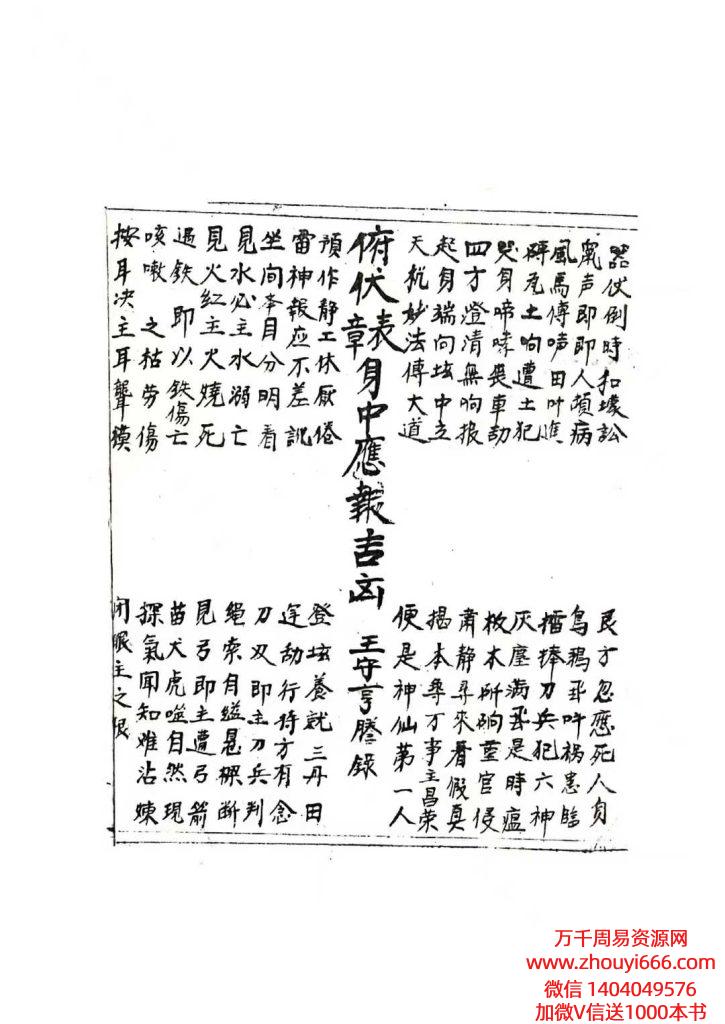 器仗倒時和壞訟
艮方忽應死人身
声即即人頭病
烏鴉飛呌祸患臨
風馬傳田叶進
擂捧刀兵犯六神
磚瓦土响遭土犯
灰塵满飛是時瘟
哭身啼哮喪車劫
板木所响官侵
四方澄清無响报
肅静尋来看假真
起身端向坛中立
揭本尊万事主昌荣
天杭妙法傳大道
便是神仙第一人
俯伏表章身中應報吉凶 王守亨謄錄
預作静工休厭倦
登坛養就三丹田
雷神報应不差訛
劫行持方有念
坐间本目分明看
刀刄即主刀兵判
見水必主水溺亡
绳索自縊悬樑断
見火红主火燒死
見弓即主遭弓箭
遇鉄即以鉄傷亡
苗犬虎噬自然現
咳嗽之枯劳傷
探氣闻知难沾
按耳决主耳聾模
闭眼主之眼
万千周易资源网
www.zhouyi666.com
微信 1404049576
加微V信送1000本书